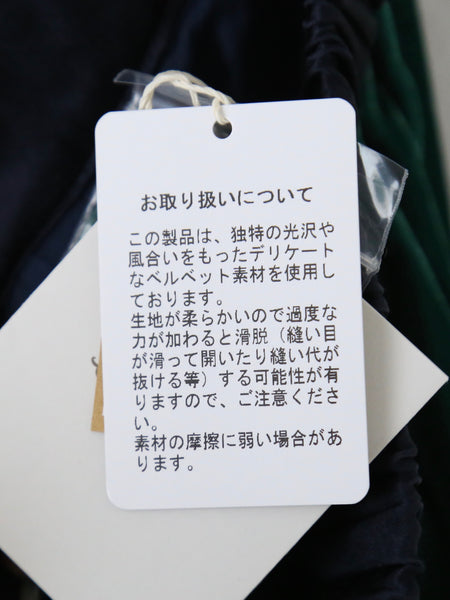 お取り扱いについて
この製品は、独特の光沢や
風合いをもったデリケート
なベルベット素材を使用し
ております。
生地が柔らかいので過度な
力が加わると滑脱（縫い目
が滑って開いたり縫い代が
抜ける等）する可能性が有
りますので、ご注意くださ
い。
素材の摩擦に弱い場合があ
ります。